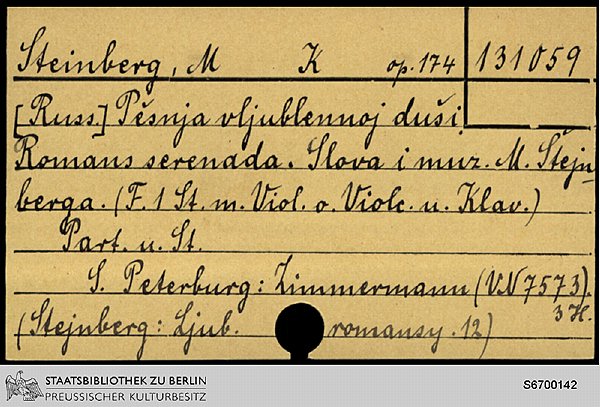 Steinberg, M K op. 174 131059
[Russ.] Pěsnja vljublennoj duši
Romans serenada. Slova i muz. M. Štejn
berga. (F. 1 St. m. Viol. o. Violc. u. Klav.)
Part. u. St.
S. Peterburg: Zimmermann (VN 7573)
3 H.
(Stejnberg: Ljub. romansy. 12)
STAATSBIBLIOTHEK ZU BERLIN
PREUSSISCHER KULTURBESITZ
S6700142